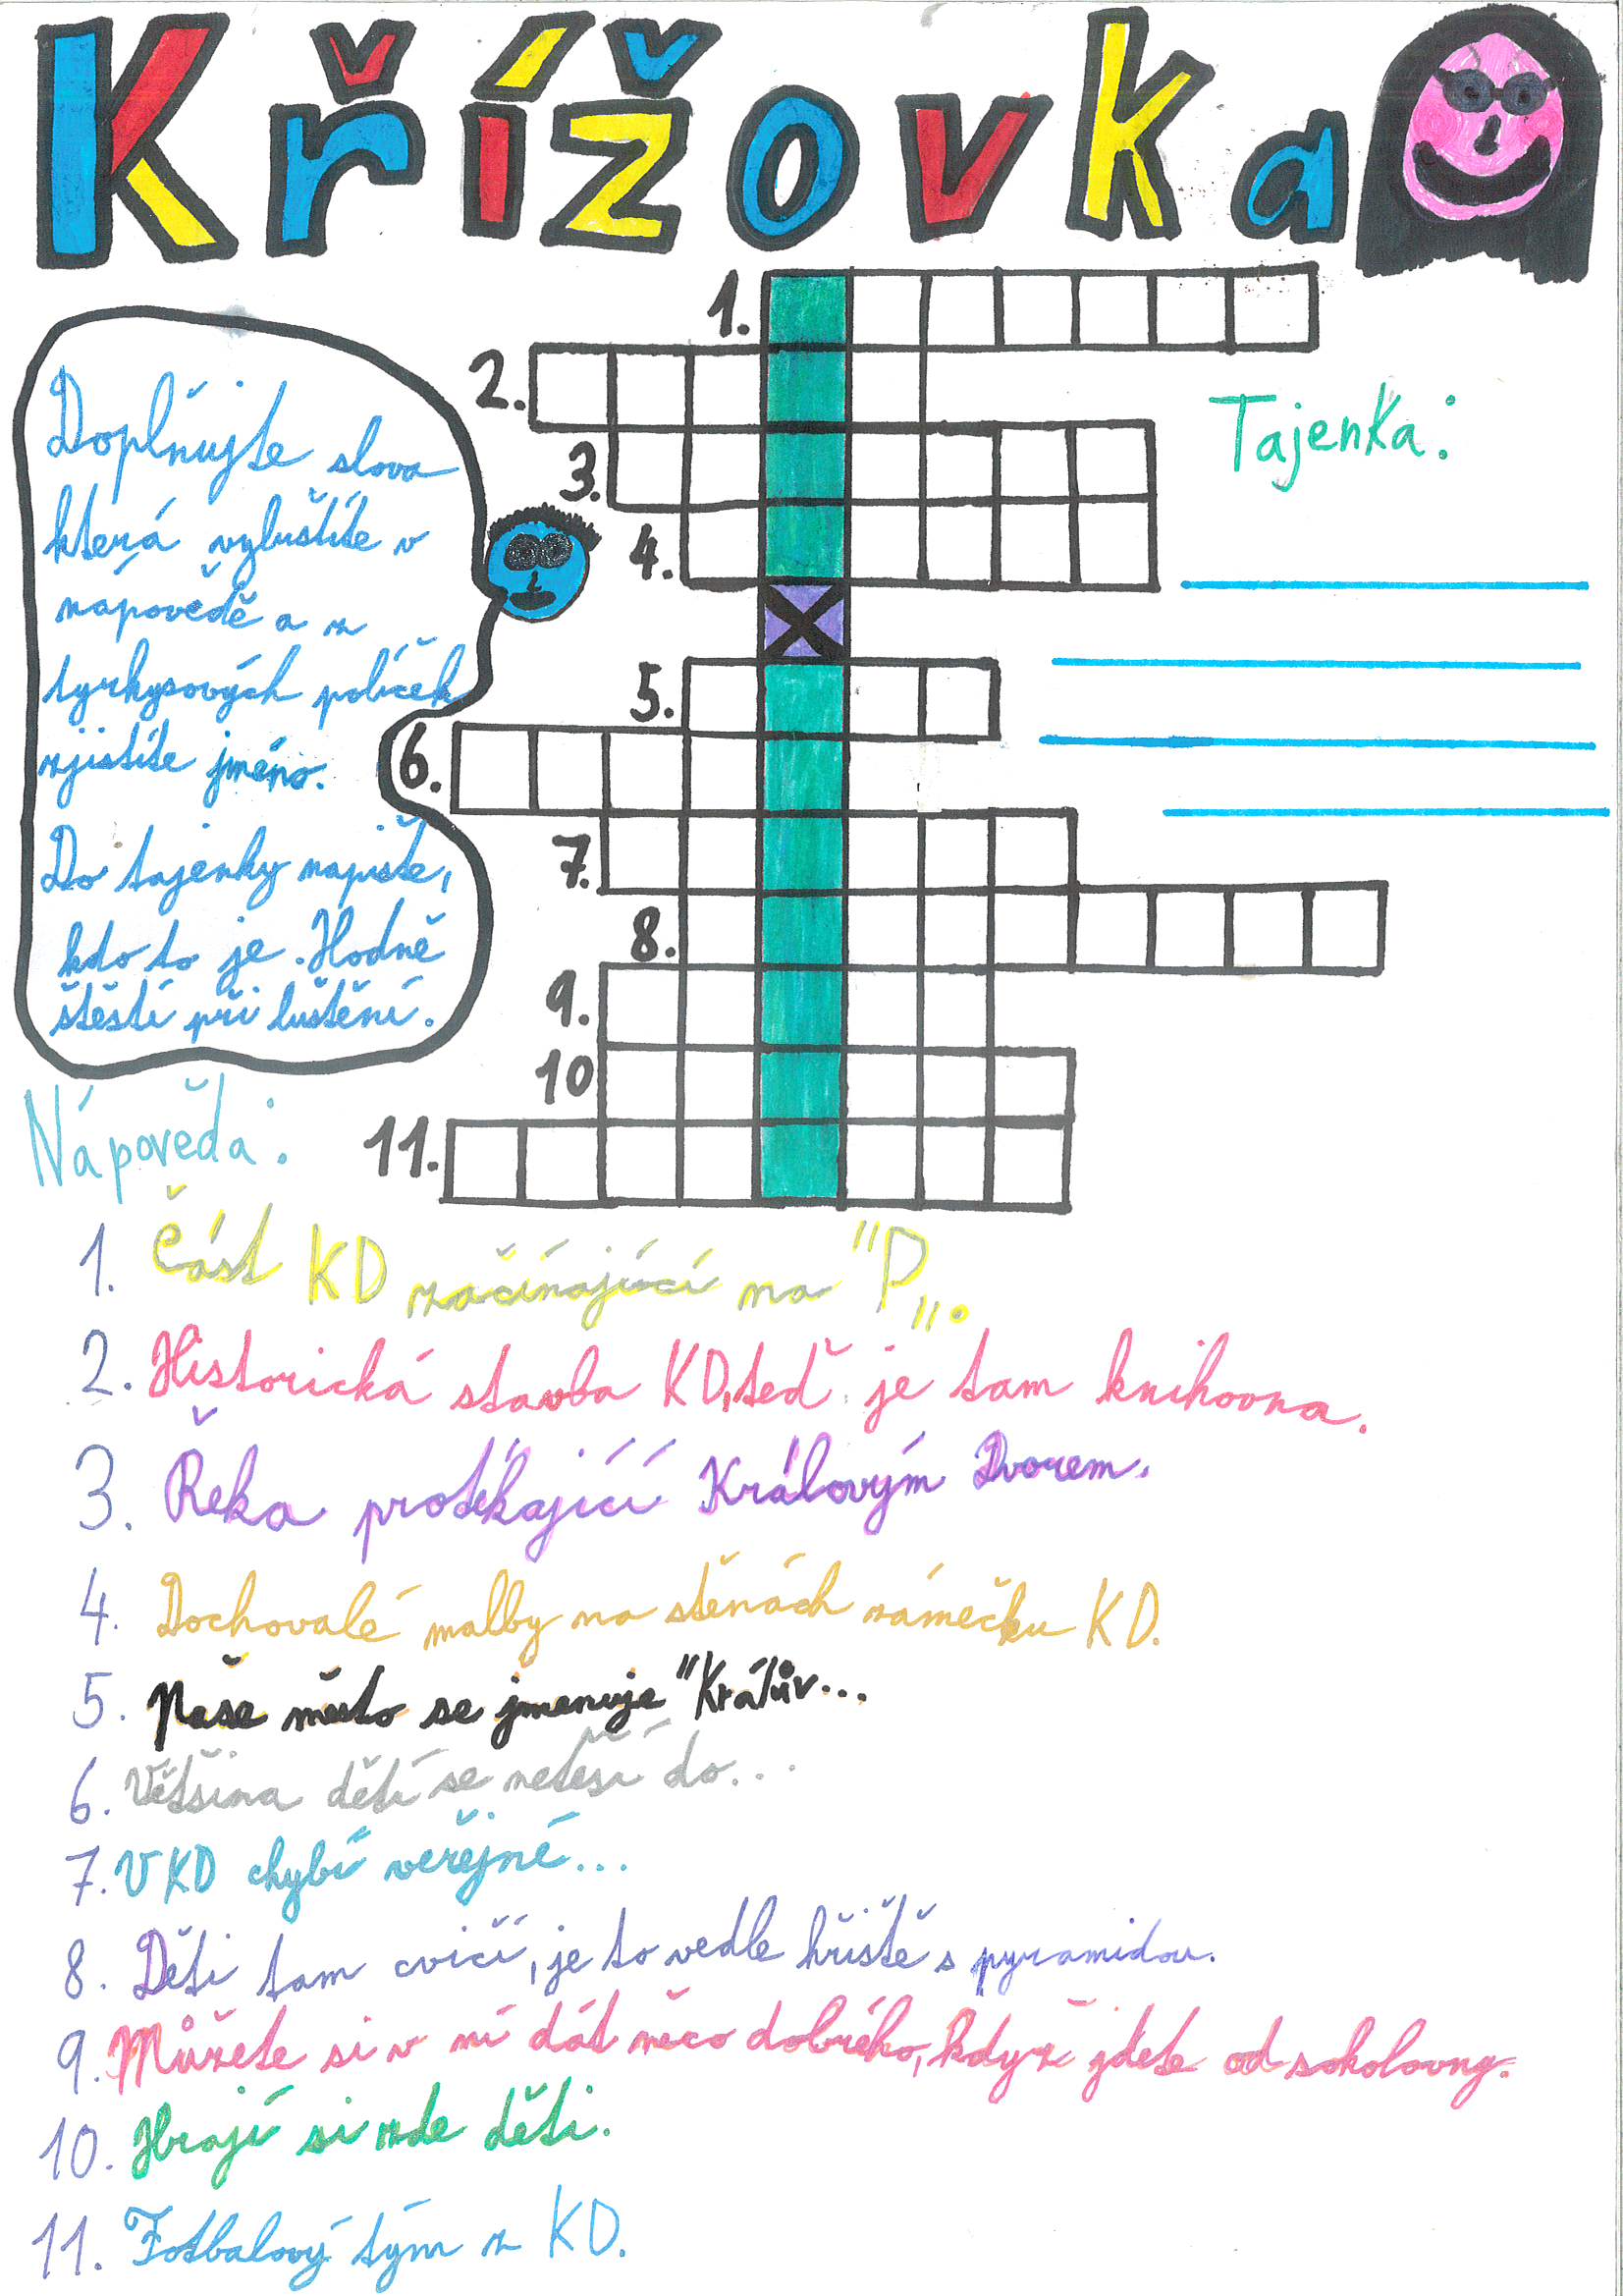 Křížovka
1.
2.
Tajenka:
3.
4.
5.
6.
7.
8.
9.
10
11.
Doplňujte slova
která vyluštíte v
nápovědě a z
tyrkysových políček
zjistíte jméno.
Do tajenky napište,
kdo to je. Hodně
štěstí při luštění.
Nápověda:
1. Část KD začínající na "P„.
2. Historická stavba KD, teď je tam knihovna.
3. Řeka protékající Královým Dvorem.
4. Dochovalé malby na stěnách zámečku KD.
5. Naše město se jmenuje "Králův...
6. Většina dětí se netěší do...
7. V KD chybí veřejné...
8. Děti tam cvičí, je to vedle hřiště s pyramidou.
9. Můžete si v ní dát něco dobrého, když jdete od sokolovny.
10. Hrají si zde děti.
11. Fotbalový tým z KD.